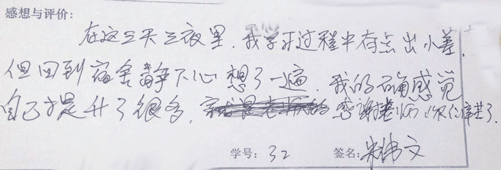 感想与评价:
在这三天三夜里,我学习过程中有点出小差,
但回到宿舍静下心想了一遍,我的确感觉
自己提升了很多,感谢老师,你们辛苦了.
学号: 32 签名: 朱伟文